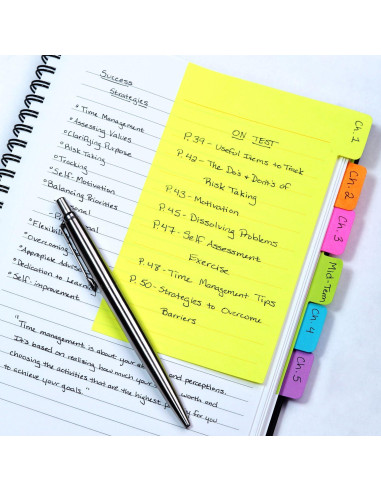 Success
Strategies
*Time Management
*Assessing Values
*Clarifying Purpose
*Risk Taking
*Tracking
*Self-Motivation
*Balancing Priorities
*Overcoming
*Appropriate
*Dedication to Learning
*Self-improvement
"Time management is about your and perceptions.
It's based on realising how much your worth and
choosing the activities that are the highest for you
to achieve your goals."
ON TEST
P.39 - Useful Items to Track
P.42 - The Do's & Dont's of
Risk Taking
P.43 - Motivation
P.45 - Dissolving Problems
P.47 - Self Assessment
Exercise
P.48 - Time Management Tips
P.50 - Strategies to Overcome
Barriers
Ch. 1
Ch. 2
Ch. 3
Mid-Term
Ch. 4
Ch. 5